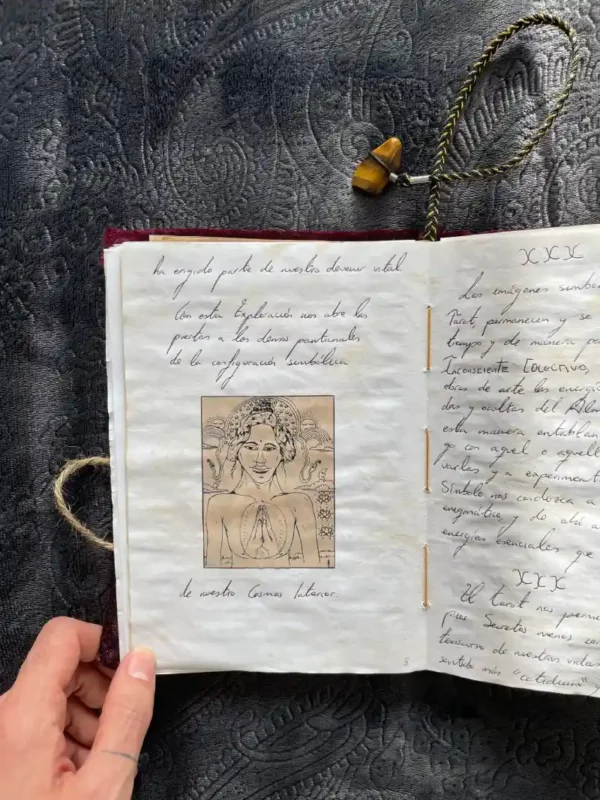 ha erigido parte de nuestro devenir vital.
Con esta Exploración nos abre las
puertas a los densos pantanales
de la configuración simbólica
de nuestro Cosmos Interior.
5
XXX
Las imágenes simból
Tarot, permanecen y se
tiempo y de manera pa
Inconsciente Colectivo,
obras de arte las energía
das y ocultas del Alm
esta manera entablan
go con aquel o aquell
varlas y a experiment
Símbolo nos conduzca a
enigmático y do ahí a
energías esenciales que
XXX
El tarot nos perm
Secretos menos
de nuestras vidas
sentido más "catedular" y